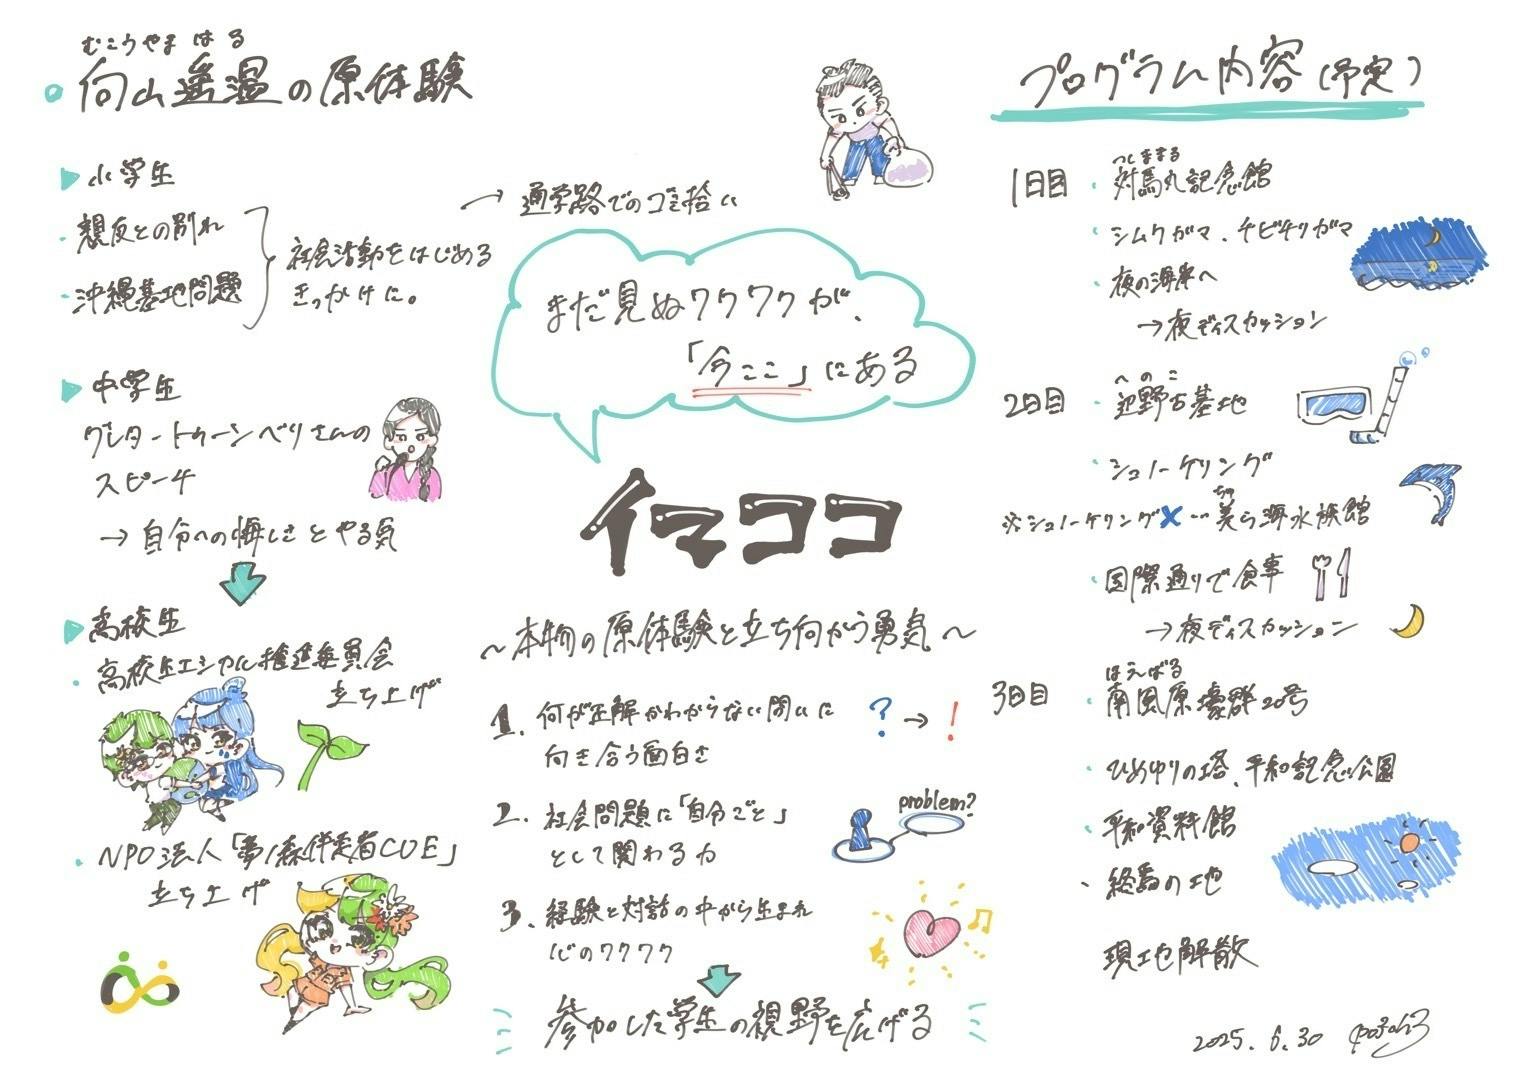 むこうやま はる
向山遥温の原体験
小学生
・親友との別れ
・沖縄基地問題
社会活動をはじめる
きっかけに。
→ 通学路でのゴミ拾い
中学生
グレタ・トゥーンベリさんの
スピーチ
→ 自分への悔しさとやる気
高校生
・高校生エシカル推進委員会
立ち上げ
・NPO法人「夢ノ森伴走者CUE」
立ち上げ
まだ見ぬワクワクが、
「今ここ」にある
イマココ
～本物の原体験と立ち向かう勇気～
1. 何が正解かわからない問いに
向き合う面白さ
? → !
2. 社会問題に「自分ごと」
として関わる力
problem?
3. 経験と対話の中から生まれ
心のワクワク
参加した学生の視野を広げる
プログラム内容(予定)
1日目
つしままる
・対馬丸記念館
・シムクガマ、チビチリガマ
・夜の海岸へ
→夜ディスカッション
2日目
へのこ
・辺野古基地
・シュノーケリング
ちゅ
※シュノーケリング✕…美ら海水族館
・国際通りで食事
→夜ディスカッション
3日目
はえばる
・南風原壕群20号
・ひめゆりの塔、平和記念公園
・平和資料館
・終焉の地
現地解散
2025.6.30